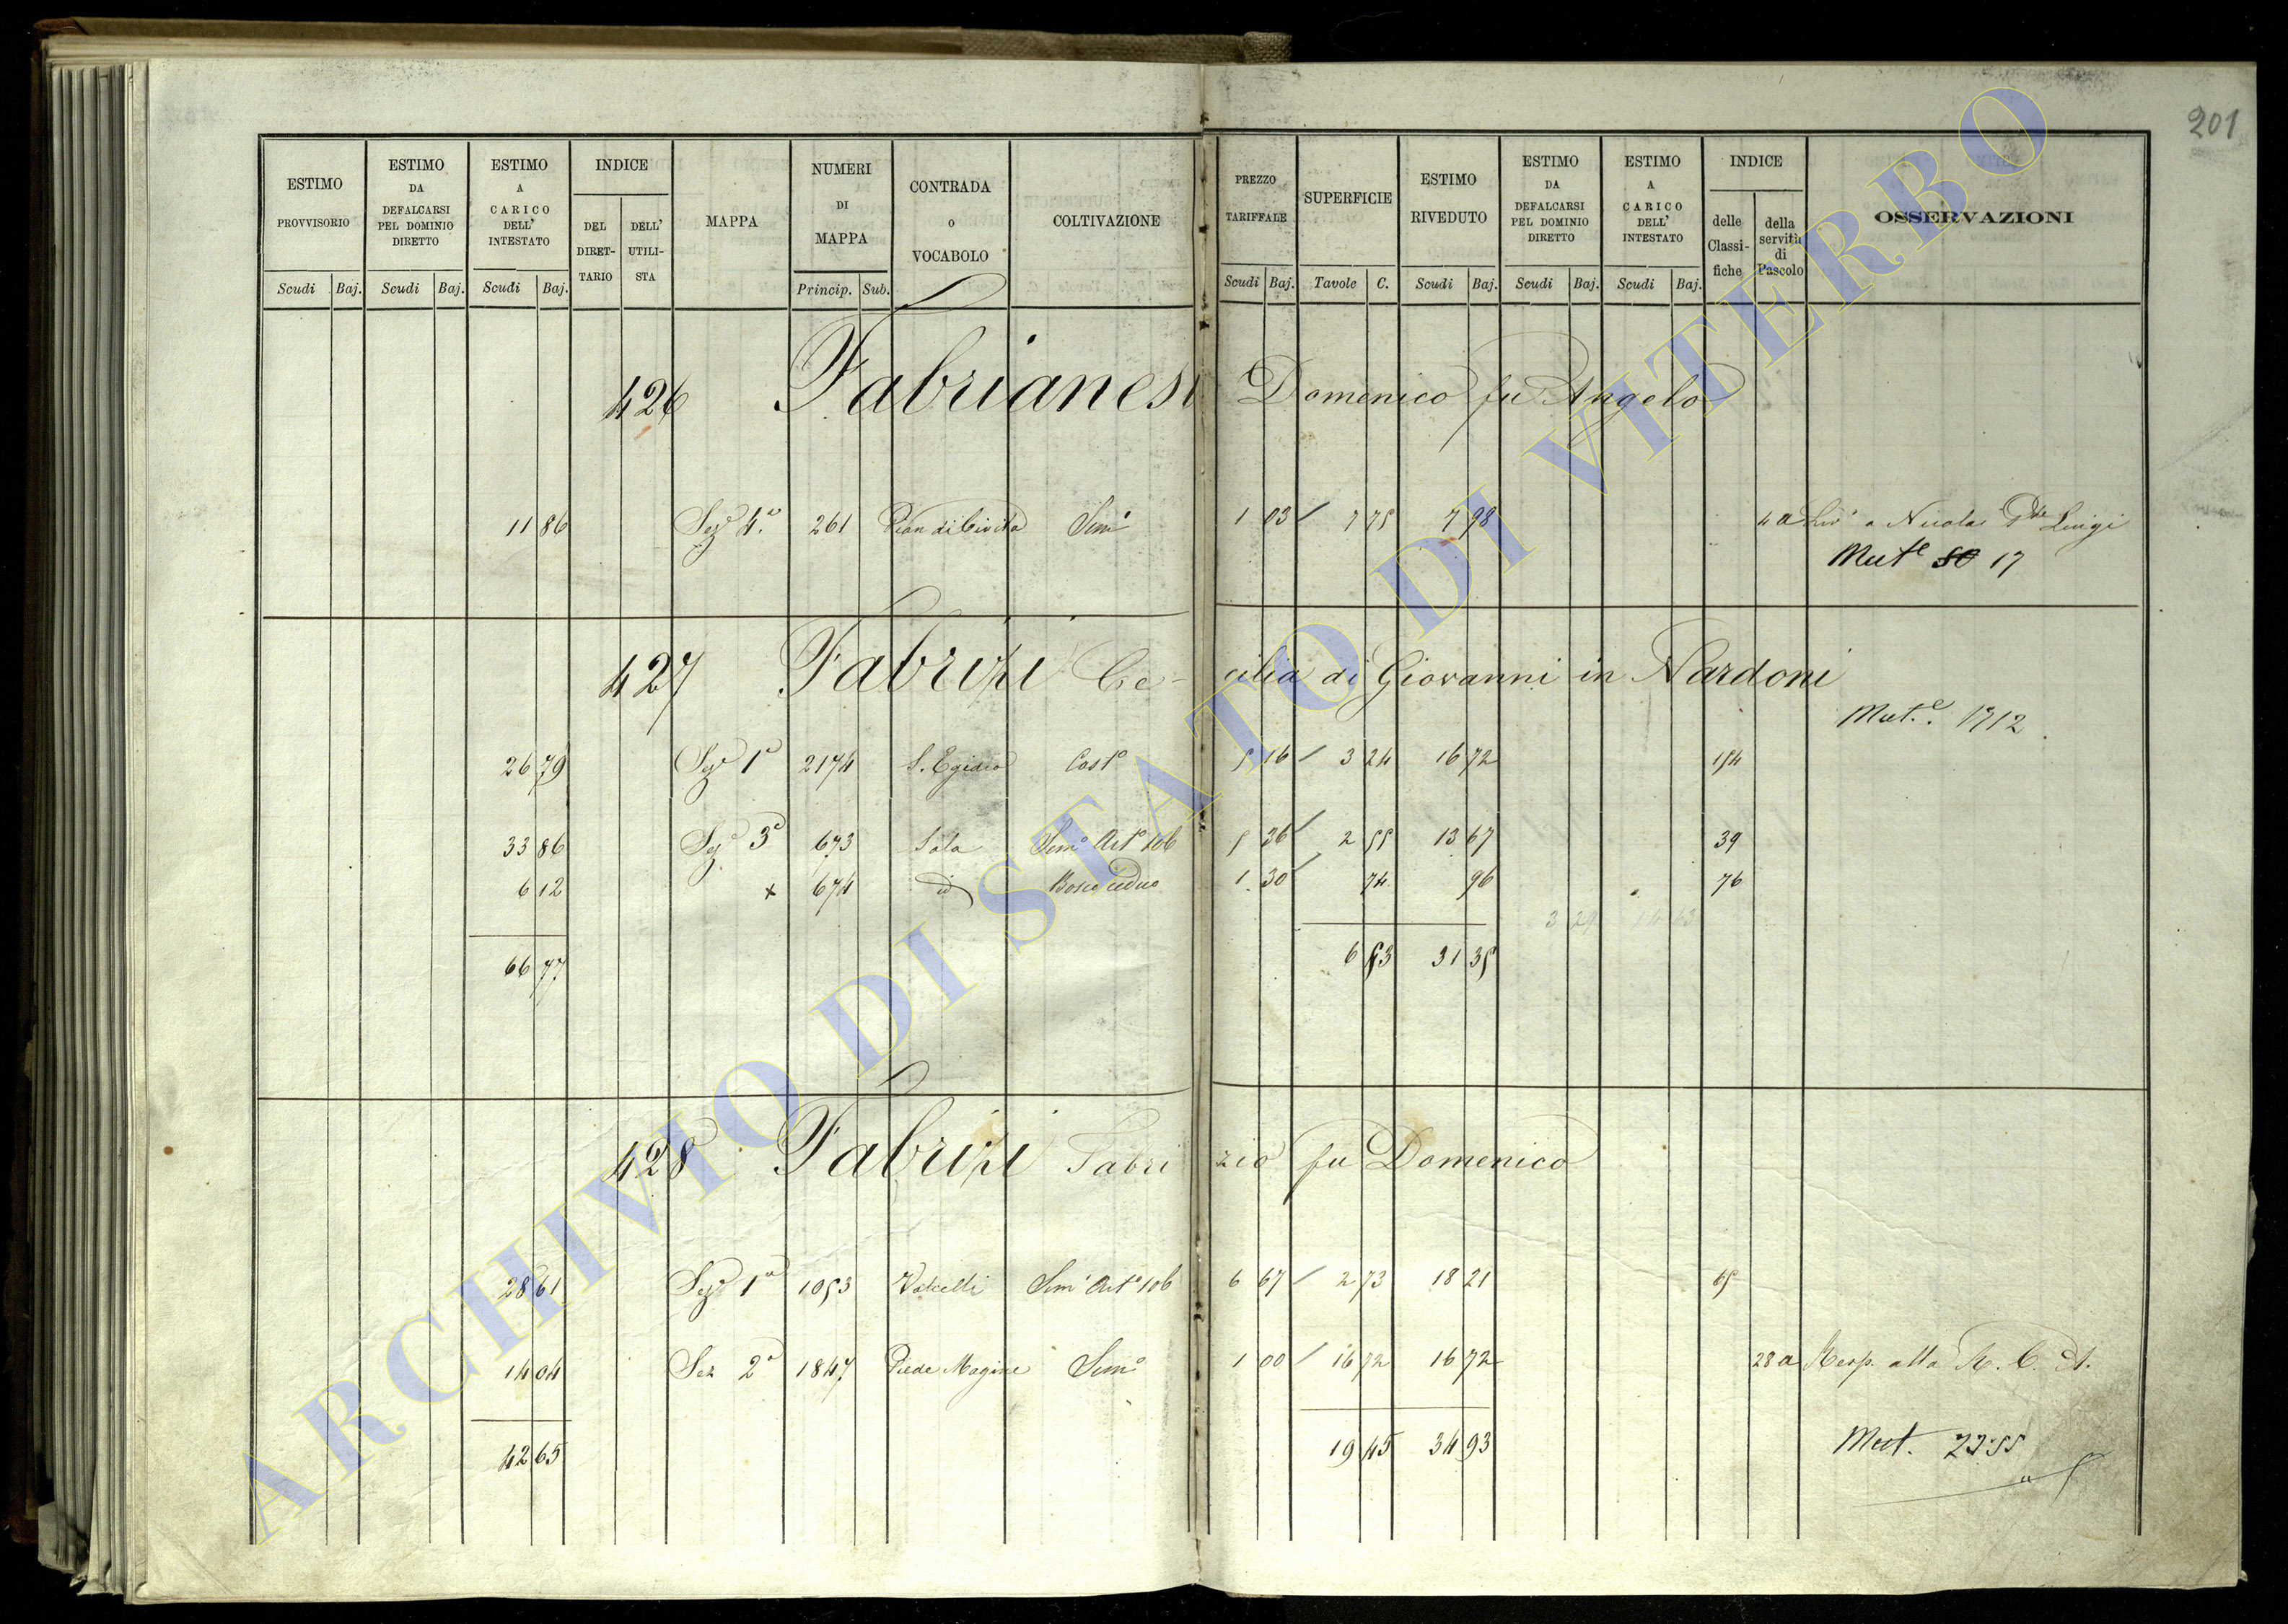 201
ESTIMO PROVVISORIO Scudi Baj. ESTIMO DA DEFALCARSI PEL DOMINIO DIRETTO Scudi Baj. ESTIMO A CARICO DELL' INTESTATO Scudi Baj. INDICE DEL DIRET-TARIO DELL' UTILI-STA MAPPA NUMERI DI MAPPA Princip. Sub. CONTRADA o VOCABOLO COLTIVAZIONE PREZZO TARIFFALE Scudi Baj. SUPERFICIE Tavole C. ESTIMO RIVEDUTO Scudi Baj. ESTIMO DA DEFALCARSI PEL DOMINIO DIRETTO Scudi Baj. ESTIMO A CARICO DELL' INTESTATO Scudi Baj. INDICE delle Classi-fiche della servitù di Pascolo OSSERVAZIONI
426 Fabrianesi Domenico fu Angelo
11 86 Sez. 4ª 261 Pian di Civita Semo 1 03 7 75 7 98 4 a Livo a Nicolai Luigi
Mute 17
427 Fabrizi Ce- cilia di Giovanni in Nardoni
Mut.e 1712
26 79 Sez 1ª 2174 S. Egidio Casto 5 16 3 24 16 72 154
33 86 Sez 3ª 673 Sala Semo Arto 106 5 36 2 55 13 67 39
6 12 x 674 id Bosco ceduo 1 30 74 96 76
3 29
66 77 6 53 31 35
428 Fabrizi Fabri zio fu Domenico
28 61 Sez 1ª 1053 Valcelli Semo Arto 106 6 67 2 73 18 21
14 04 Sez 2ª 1847 Piede Magine Semo 1 00 16 72 16 72 28 a Resp. alla R. C. A.
42 65 19 45 34 93 Mut. 2355
ARCHIVIO DI STATO DI VITERBO